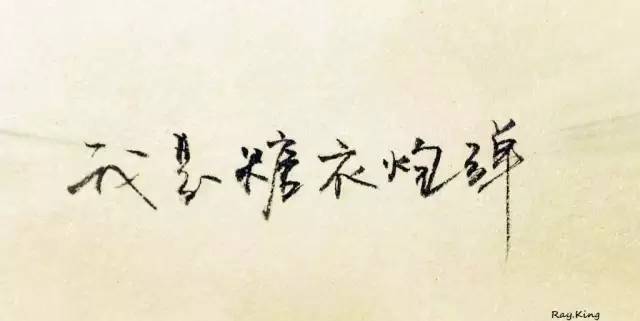 我是糖衣炮弹
Ray.King